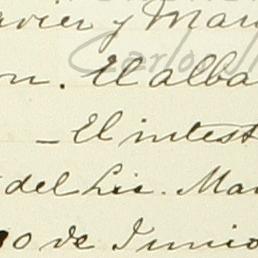 avier y Mar
on. El alba
— El intest
del Lic. Man
90 de Junio